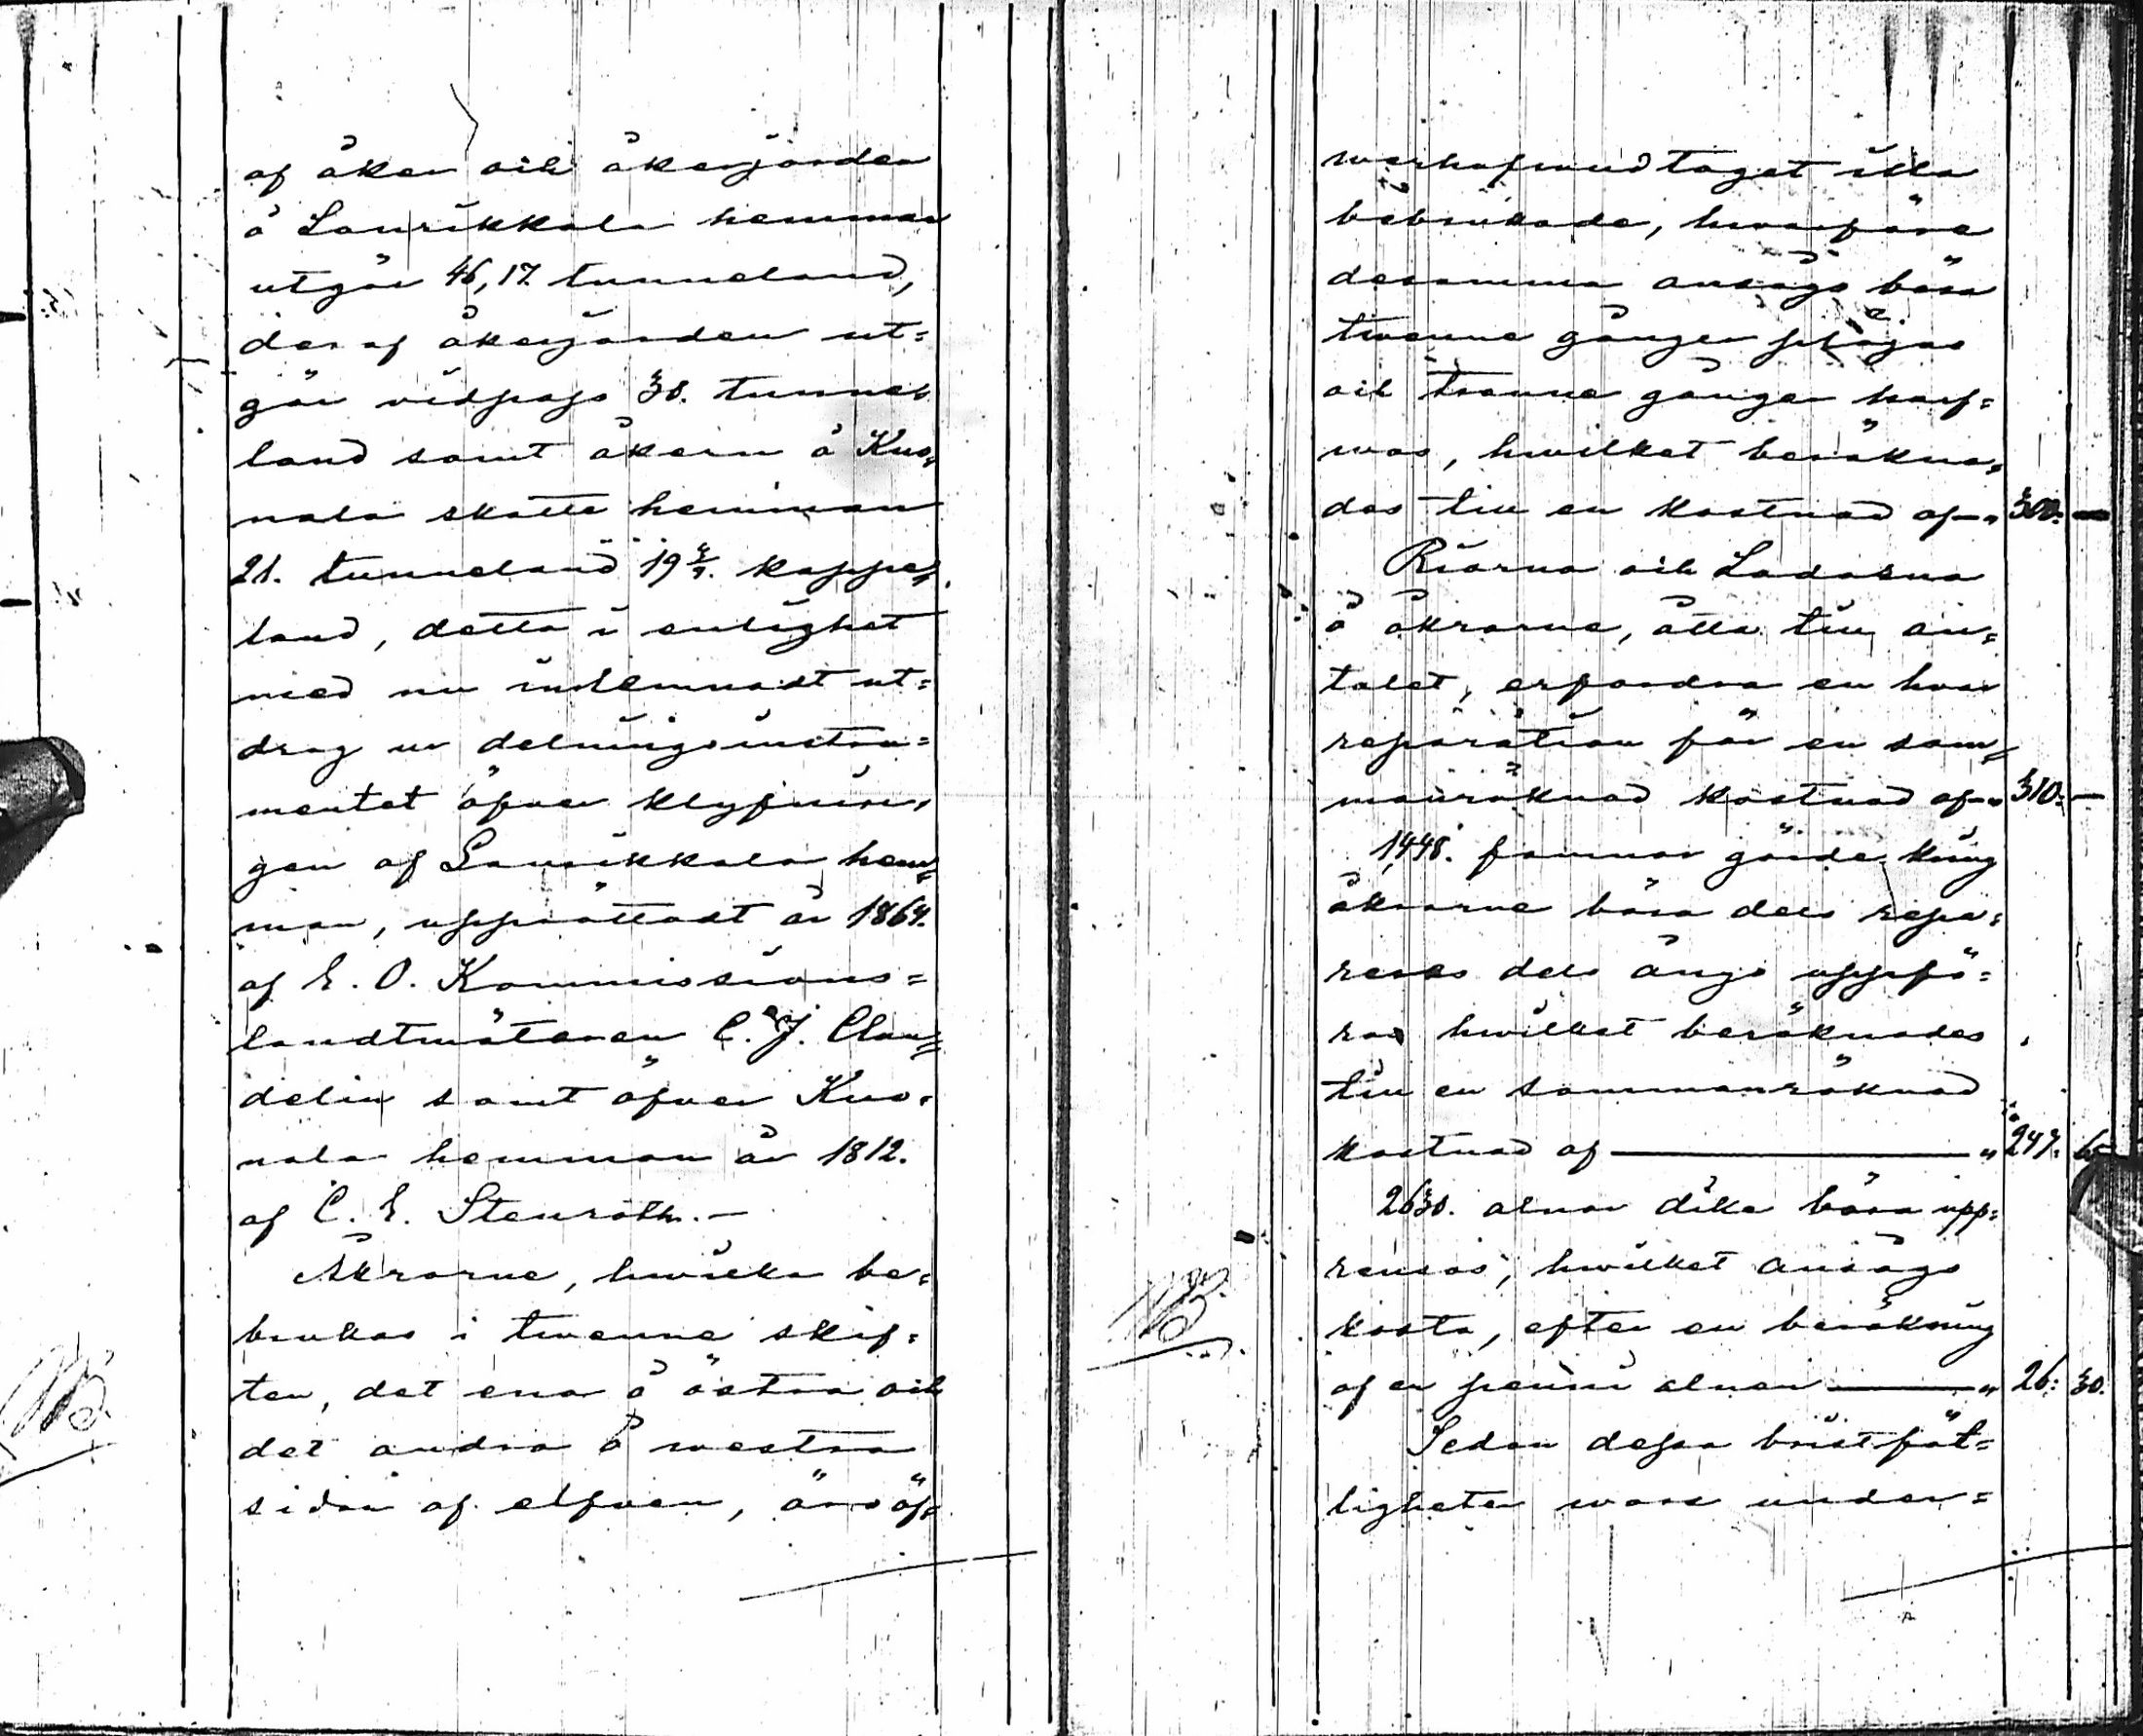 af åker och åkerjorden
å Laurikkala hemman
utgör 46,17. tunneland,
der af åkerjorden ut=
gör vidpass 30. tunne=
land samt åkern å Kuo=
nala skatte hemman
21. tunneland 19 4/7. kappe=
land, detta i enlighet
med nu inlemnadt ut=
drag ur delningsinstru=
mentet öfver klyfnin=
gen af Laurikkala hem=
man, upprättadt år 1864.
af E. O. Kommissions=
landtmätaren C. J. Clau=
delin samt öfver Kuo=
nala hemman år 1812.
af C. E. Stenroth.—
Åkrarne, hwilka be=
brukas i twenne skif=
ten, det ena å östra och
det andra å westra
sidan af elfven, äro öf=
NB
werhufwud taget illa
bebrukade, hwarföre
desamma ansågs böra
twenne gånger plöjas
och trenne gånger harf=
was, hwilket beräkna=
das till en kostnad af—„ 300: —
Riorna och Ladorna
å åkrarne, åtta till an=
talet, erfordra en hvar
reparation för en sam=
manräknad kostnad af—„ 310: —
1448. famnar gärde kring
åkrarne böra dels repa=
reras dels ångs uppfö=
ras hwilket beräknades
till en sammanräknad
kostnad af — „ 247:
2630. alnar dike böra upp=
rensas, hwilket ansågs
kosta, efter en beräkning
af en penni alnen — „ 26: 30.
Sedan dessa bristfäl=
ligheter wore under=
NB